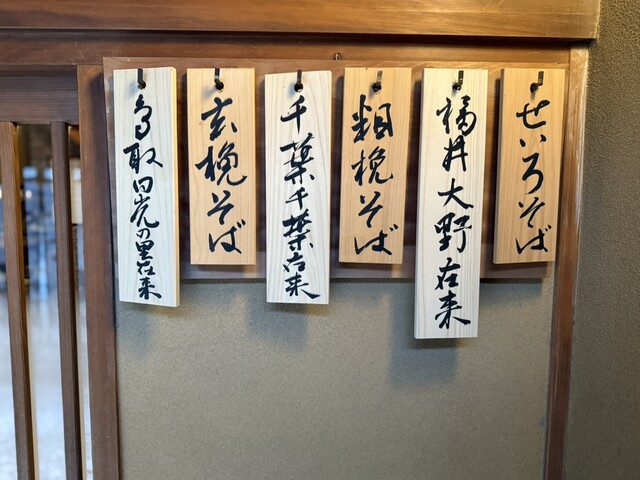 せいろそば
福井大野在来
粗挽そば
千葉千葉在来
玄挽そば
鳥取日光の里在来